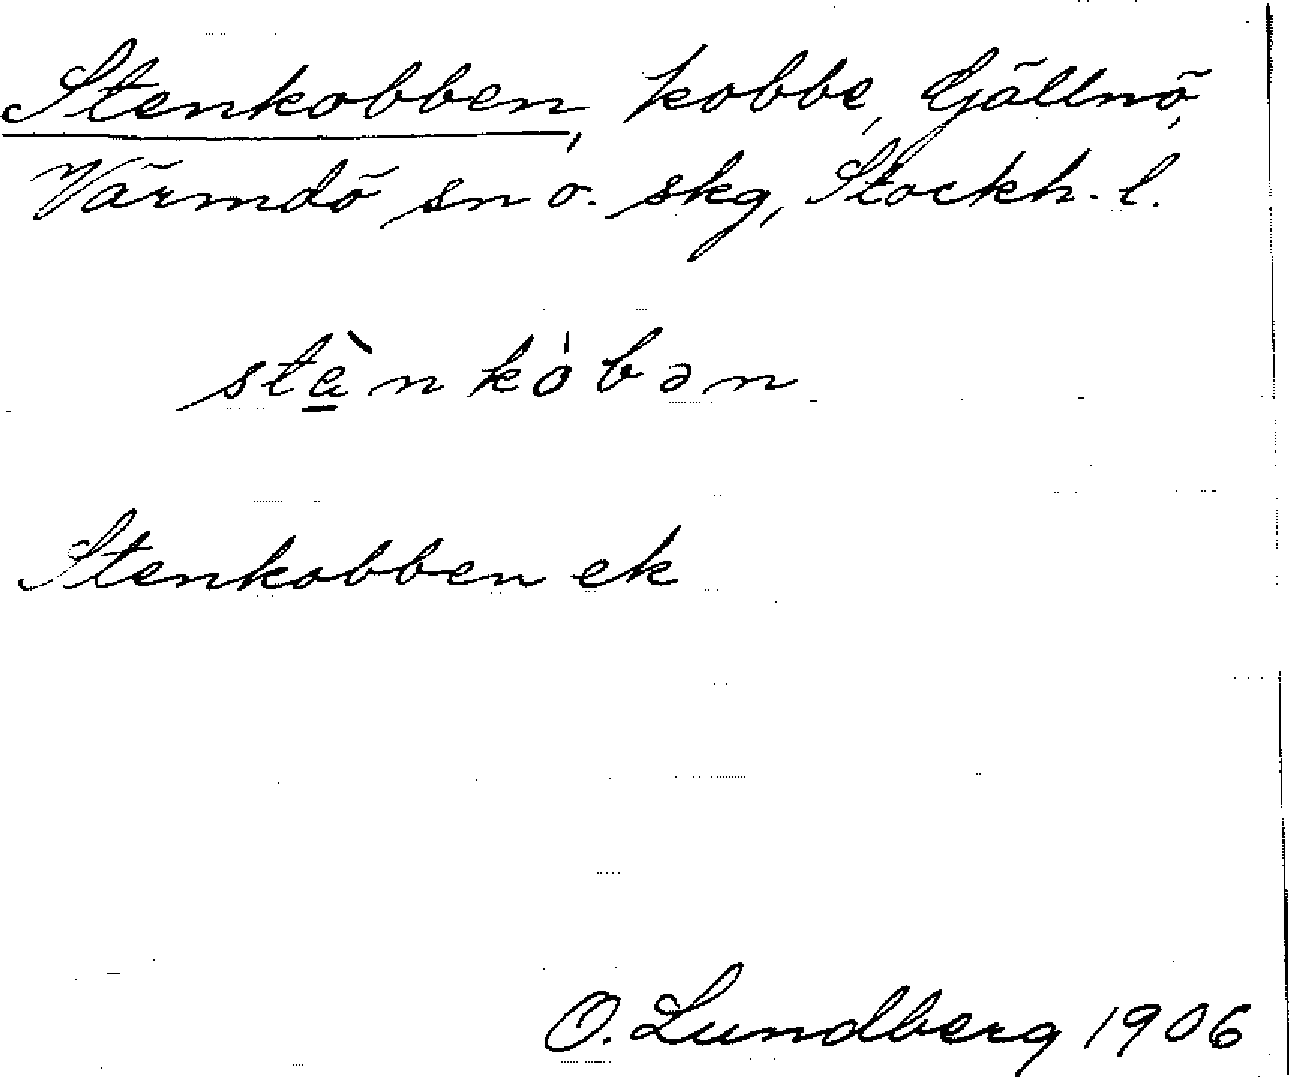 Stenkobben, kobbe, Gällnö,
Värmdö sn o. skg, Stockh. l.
stè̱nkȯbən
Stenkobben ek
O. Lundberg 1906